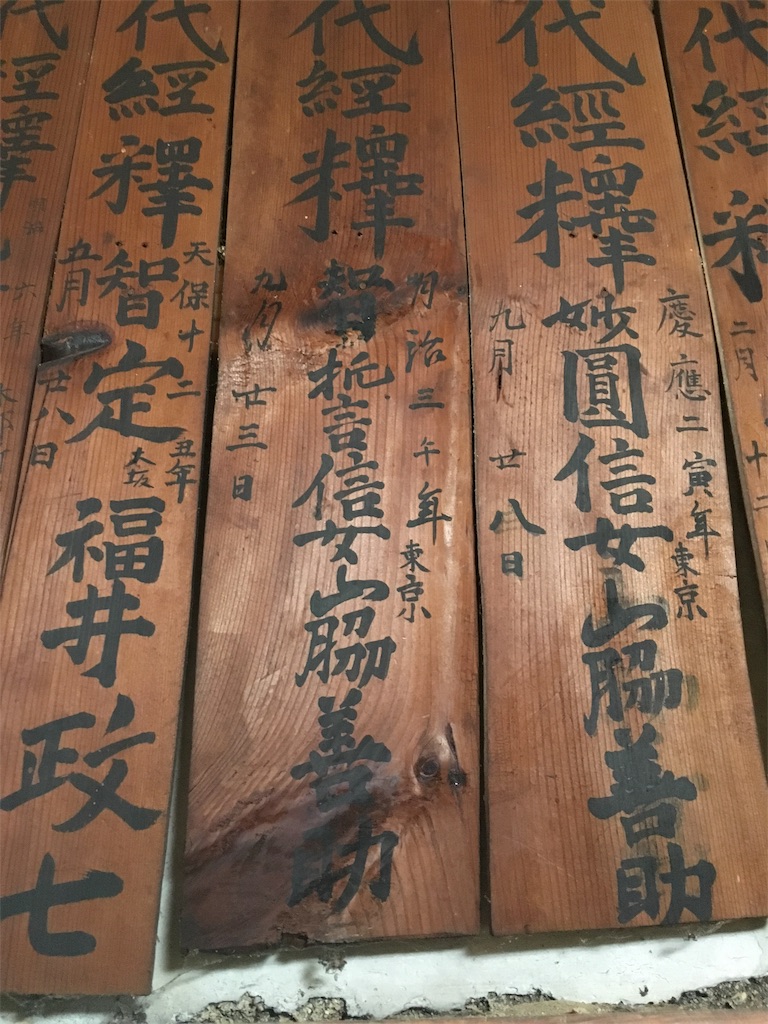 代經釋
二月
十二
代經釋妙圓信女山脇善助
慶應二寅年東京
九月廿八日
代經釋智誓信女山脇善助
明治三午年東京
九月廿三日
代經釋智定福井政七
天保十二丑年
五月廿八日
經釋
六年